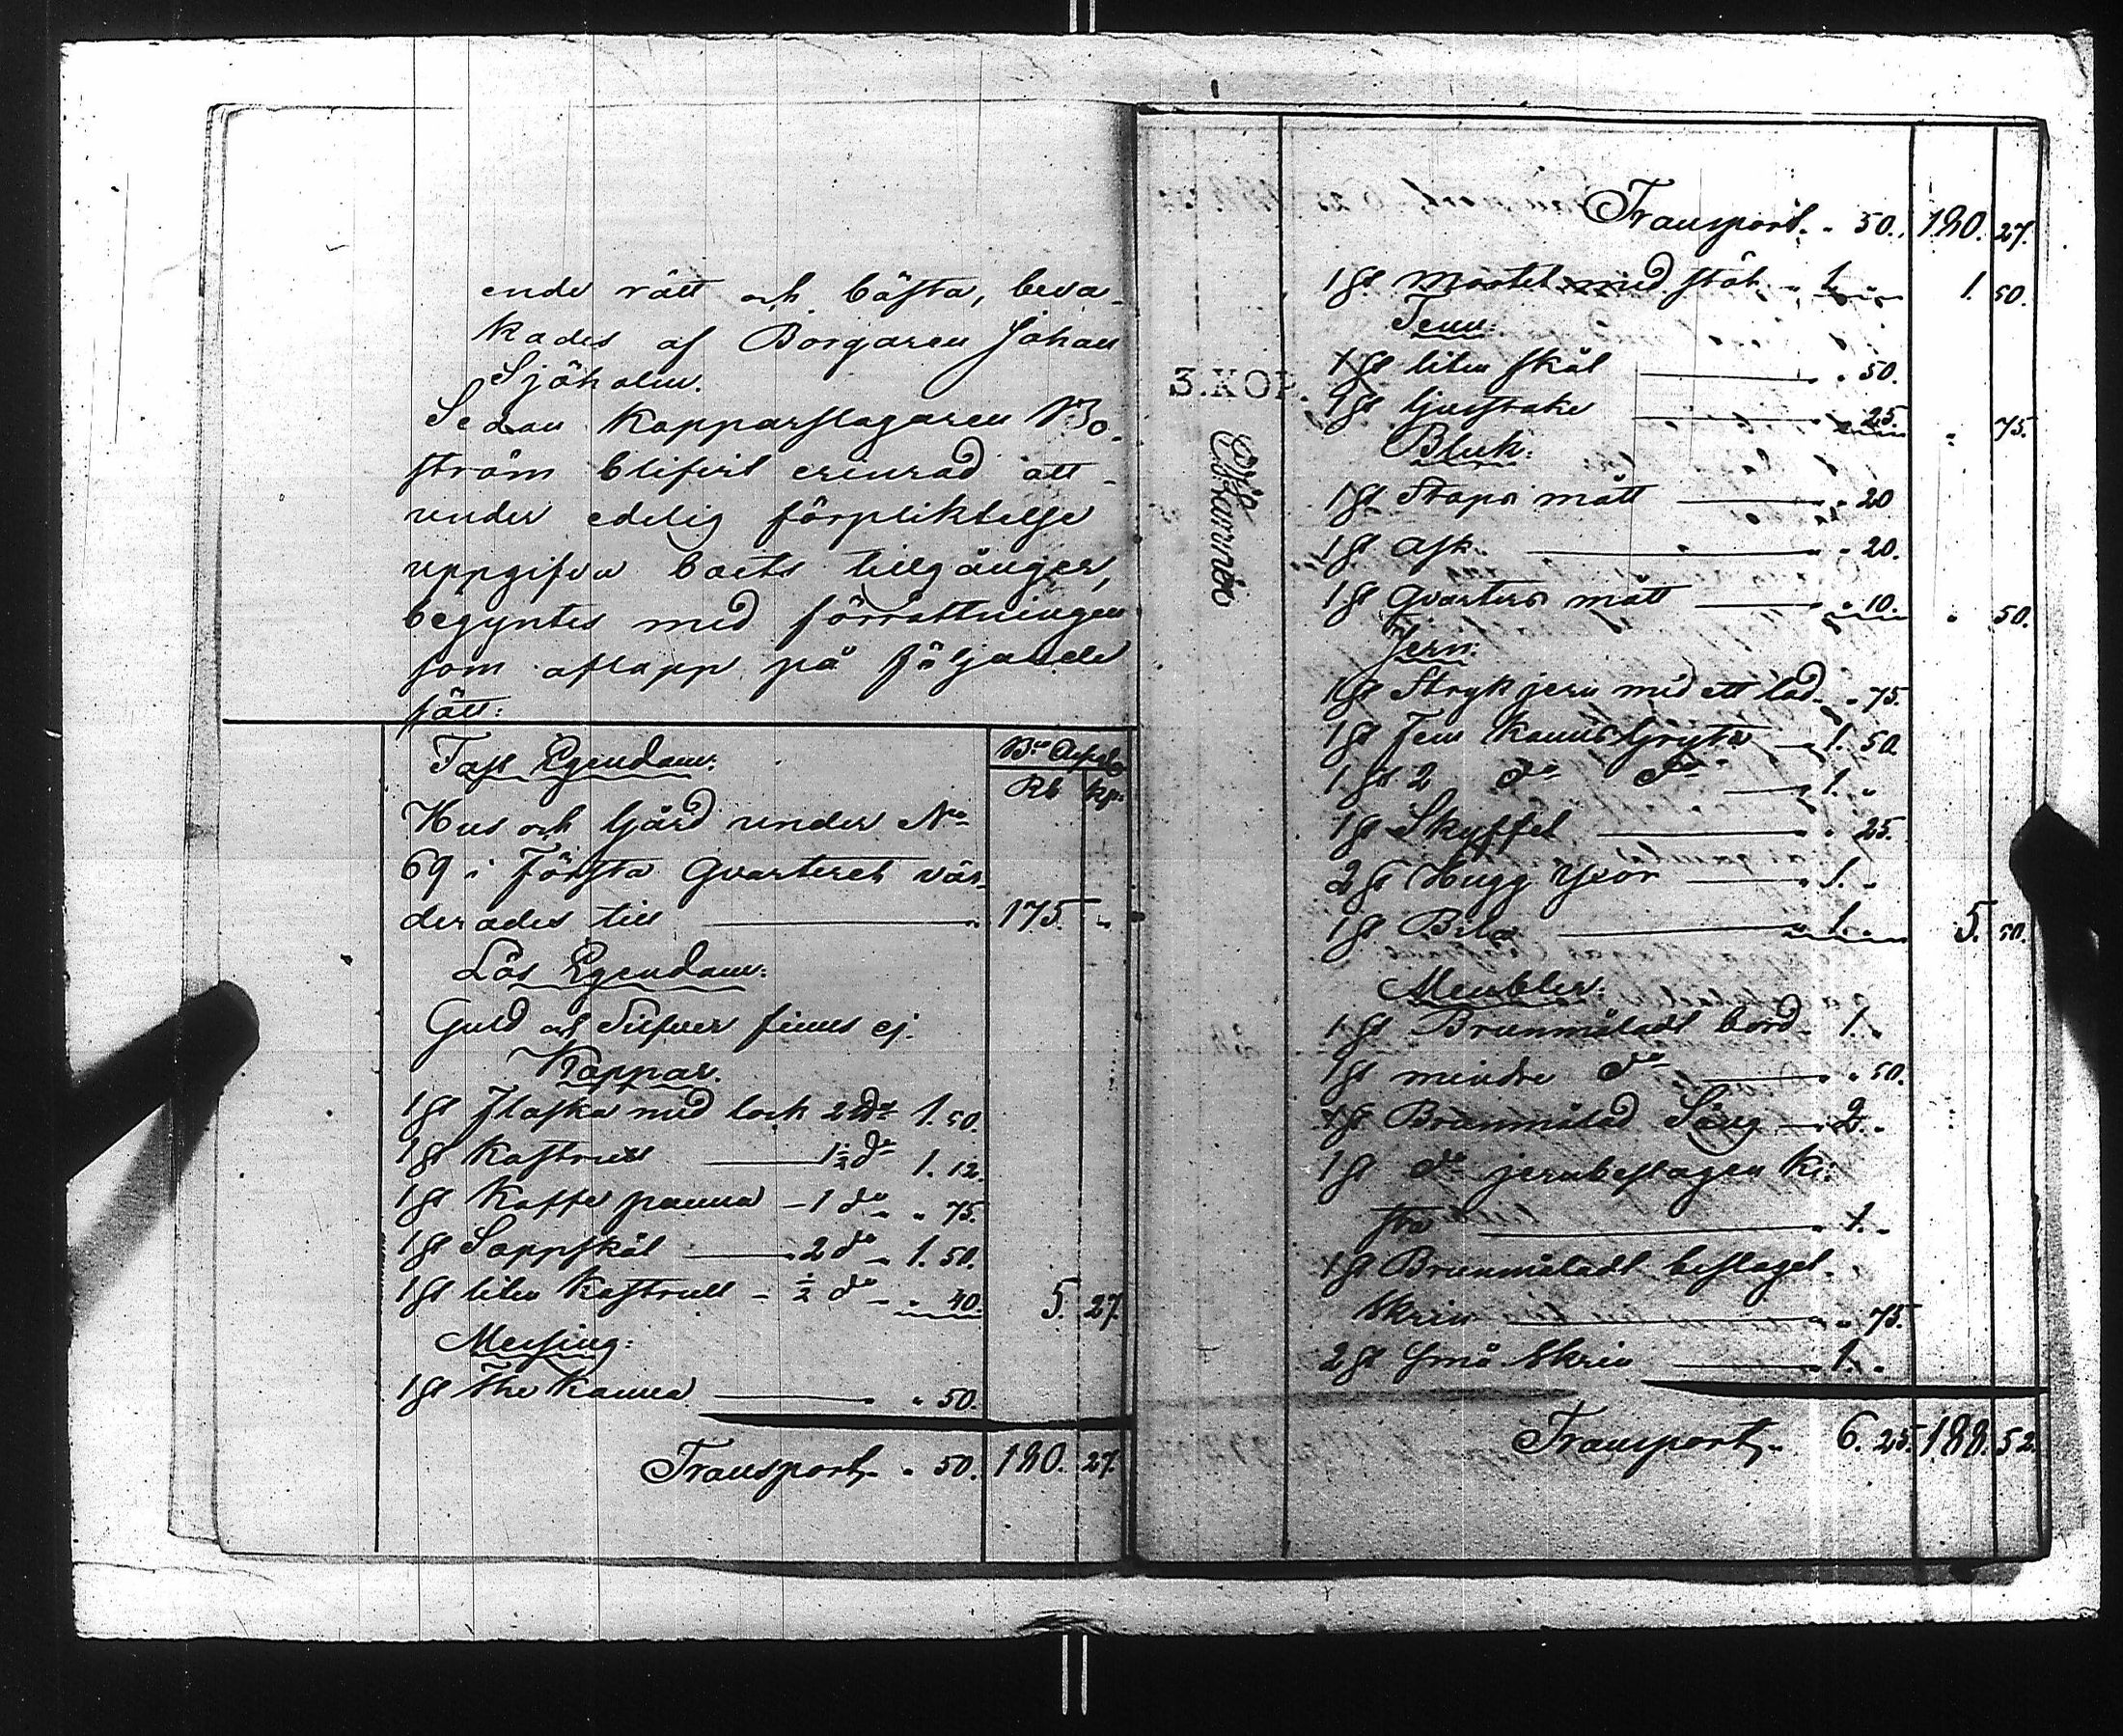 ende rätt och bästa, beva-
kades af Borgaren Johan
Sjöholm.
Sedan Kopparslagaren Bo-
ström blifvit erinrad att
under edelig förpliktelse
uppgifva boets tillgångar,
begyntes med förrättningen
som aflopp på följande
sätt:
Fast Egendom:
Rb kp:
Hus och Gård under No
69 i Första Qvarteret vär-
derades till 175. "
Lös Egendom:
Guld och Silfver finns ej.
Koppar.
1 st Flaska med lock 2 1. 50.
1 st Kastrull 1½ do 1. 12.
1 st Kaffe panna - 1 do " 75.
1 st Soppskål 2 do 1. 50.
1 st liten Kastrull - ½ do " 40. 5. 27.
Messing:
1 st The Kanna " 50.
Transport " 50. 180. 27.
Transport " 50. 180. 27.
1 st Mortel med stöt 1. " 1. 50.
Tenn:
1 st liten skål " 50.
1 st ljusstake " 25. " 75.
Bleck:
1 st Stops mått " 20
1 st Ask " 20.
1 st Qvarters mått " 10. " 50.
Jern:
1 st Strykjern med ett lod " 75.
1 st Fem Kanns Gryta 1. 50.
1 st 2 do do 1. "
1 st Skyffel " 25.
2 st Hugg 1. "
1 st Bila 1. " 5. 50.
Meubler:
1 st Brunmåladt bord 1. "
1 st mindre do " 50.
1 st Brunmålad Säng 2. "
1 st do jernbeslagen Ki-
sta 1. "
1 st Brunmåladt beslaget
Skrin " 75.
2 st små Skrin 1. "
Transport 6. 25. 188. 52.
3.KOP.